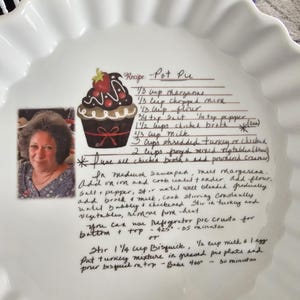 Recipe Pot Pie
1/3 cup margarine
1/3 cup chopped onion
1/3 cup flour
1/2 tsp salt 1/4 tsp pepper
1 1/2 cups chicken broth
2/3 cup milk
3 cups shredded turkey or chicken
2 cups frozed mixed vegetables
* use all chicken broth and powdered creamer
In medium saucepan, melt margarine
Add onion and cook until tender. Add flour,
salt & pepper. Stir until well blended. gradually
add broth & milk, cook stirring Constantly
until bubbly & thickened. Stir in turkey and
vegetables, remove from heat
You can use Refrigerator pie crusts for
bottom & top - 425°
minutes
or
Stir 1 1/4 cup Bisquick, 1/2 cup milk & 1 egg
Put turkey mixture in greased pie plate and
pour bisquick on top - Bake 400° - 30 minutes